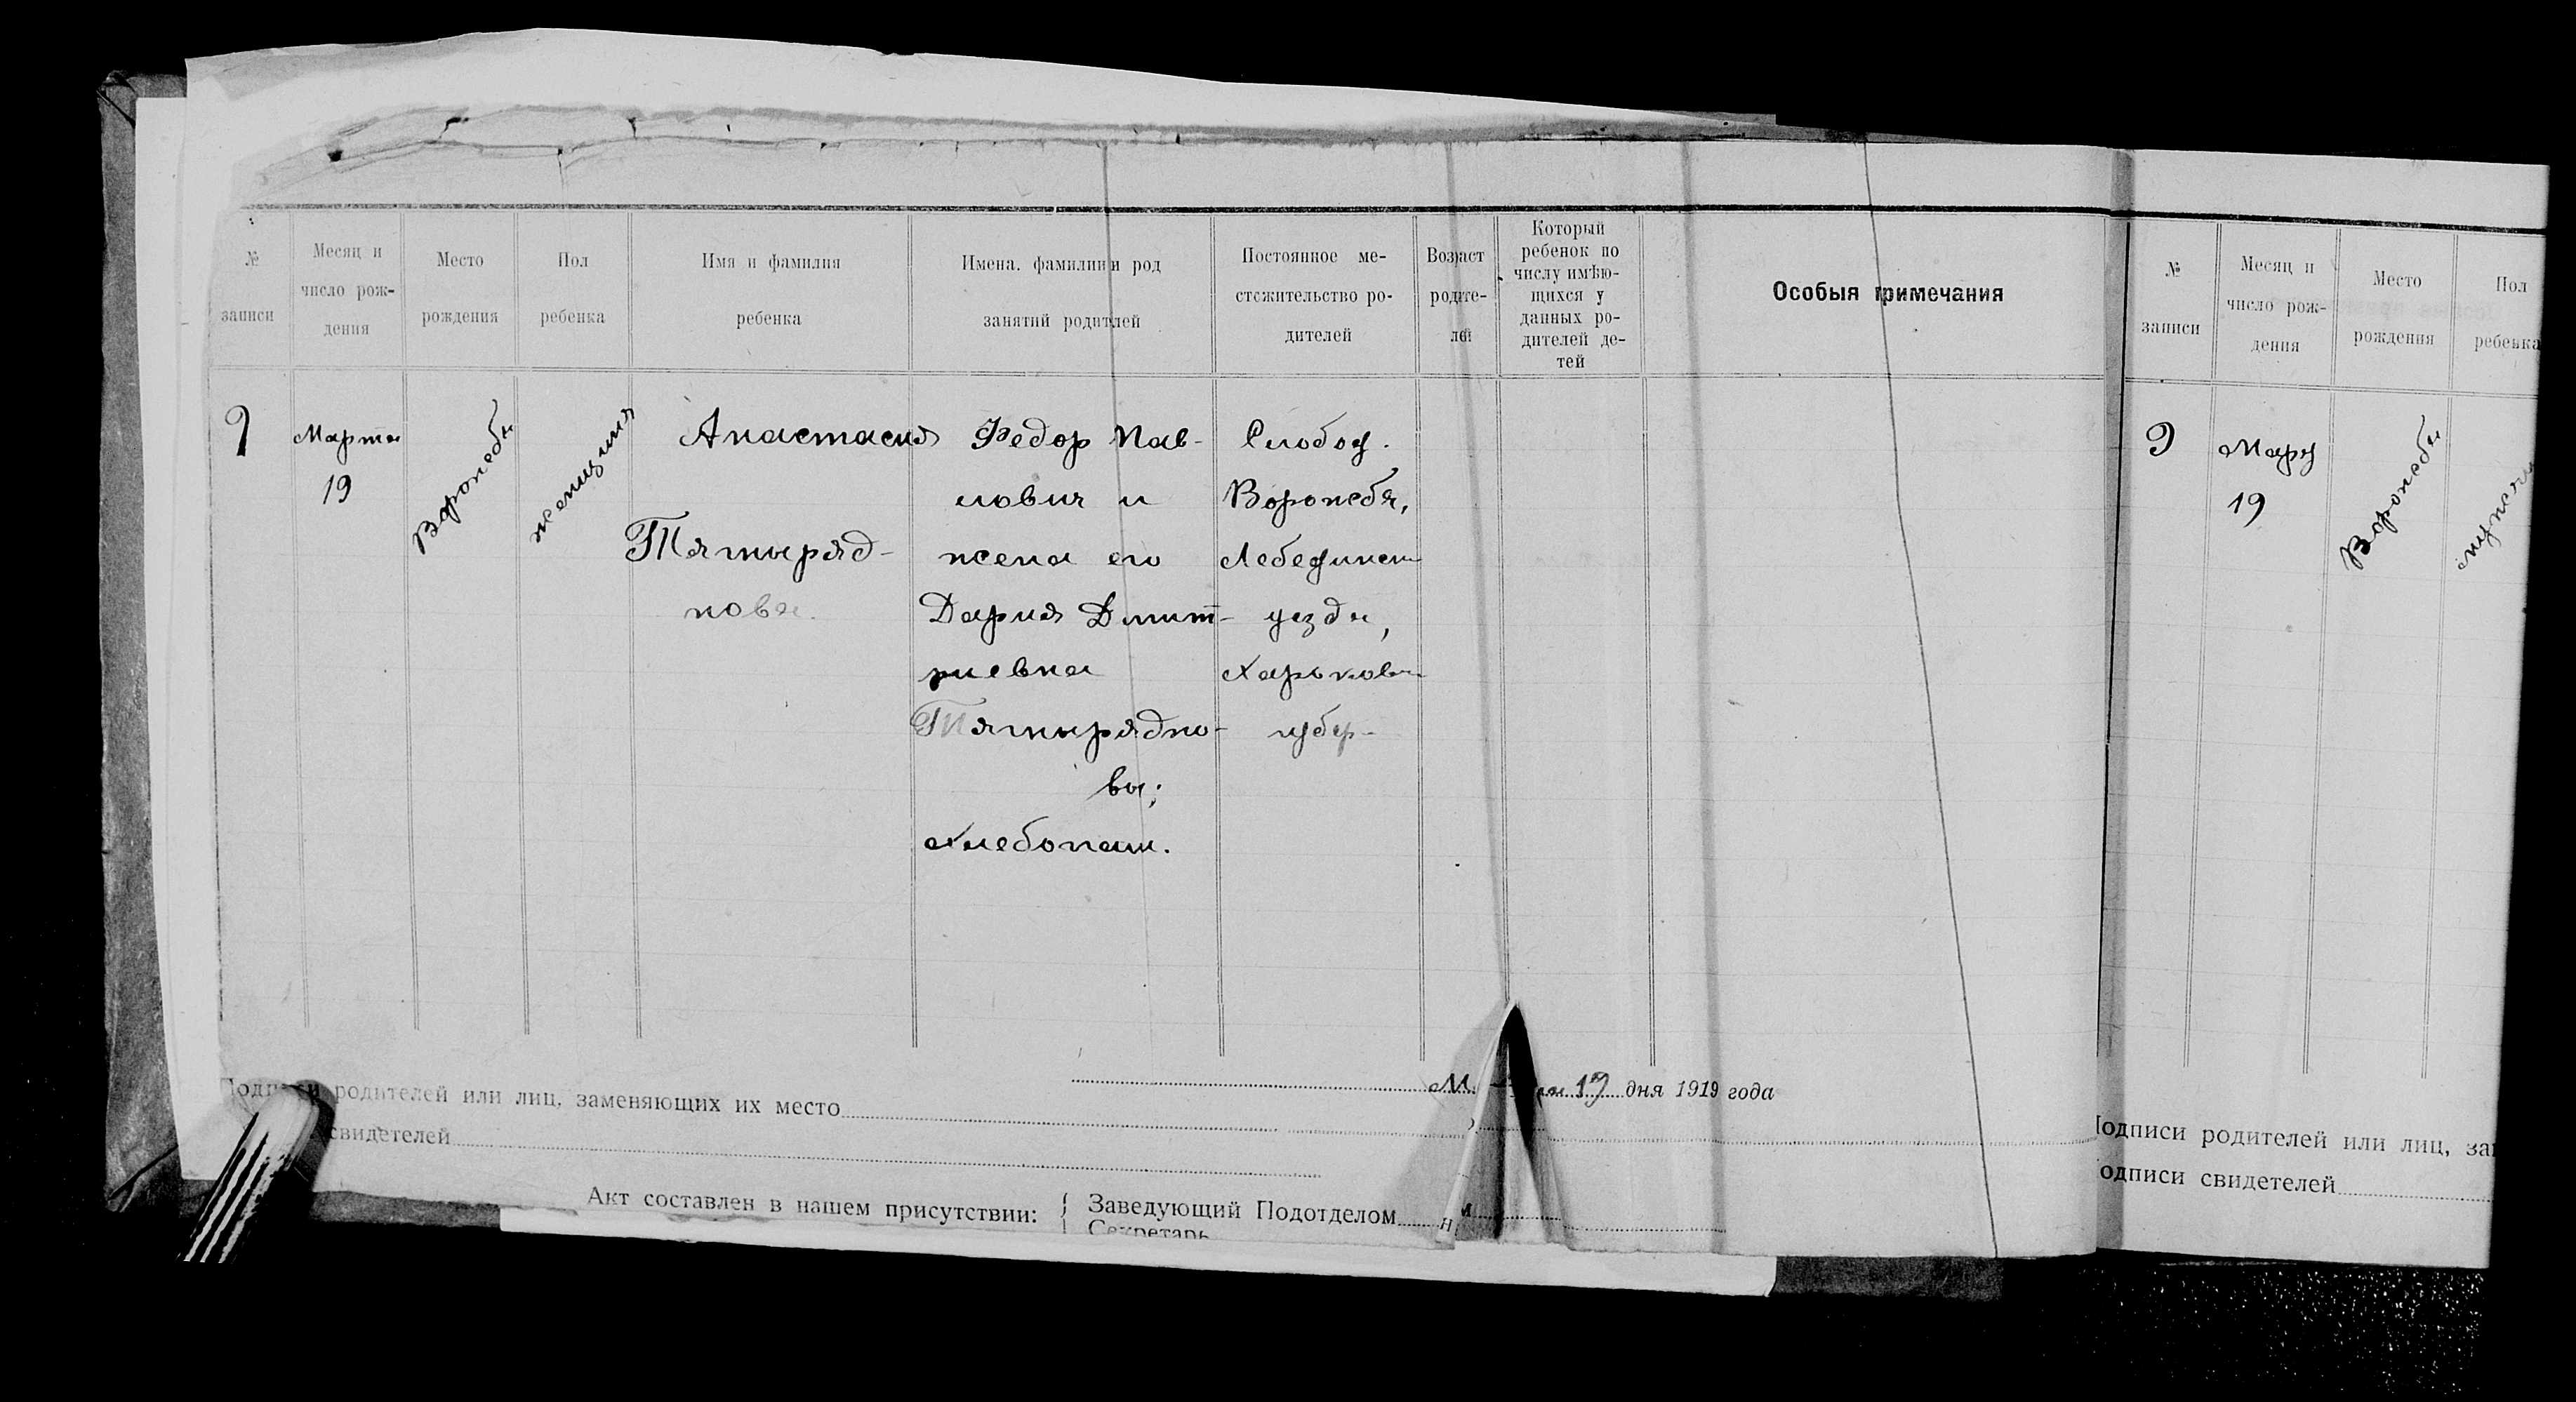 №
записи
Месяц и
число рож-
дения
Место
рождения
Пол
ребенка
Имя и фамилия
ребенка
Имена, фамилии и род
занятий родителей
Постоянное ме-
стожительство ро-
дителей
Возраст
родите-
лей
Который
ребенок по
числу имѣю-
щихся у
данных ро-
дителей де-
тей
Особыя примечания
Марта
19
Ворожба
женщина
Анастасия
Тятиряд-
нова.
Федор Пав-
лович и
жена его
Дария Дмит-
риевна
Тятирядно-
вы;
хлебопаш.
Слобод.
Ворожба,
Лебединск
уезда,
Харьков
губер-
19 дня 1919 года
Подписи родителей или лиц, заменяющих их место
свидетелей
Акт составлен в нашем присутствии:
Заведующий Подотделом
Секретарь
№
записи
Месяц и
число рож-
дения
Место
рождения
Пол
ребенка
9
Мар
19
Ворожба
Подписи родителей или лиц, за
одписи свидетелей